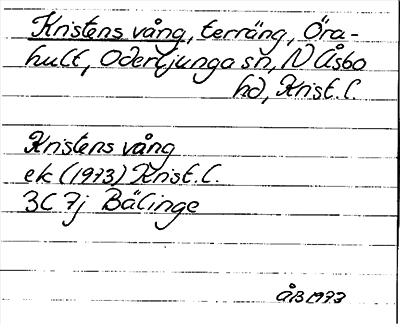 Kristens vång, terräng, Öra-
hult, Oderljunga sn, N Åsbo
hd, Krist. l.
Kristens vång
ek (1973) Krist. l.
3C 7j Bälinge
ÅB 1973